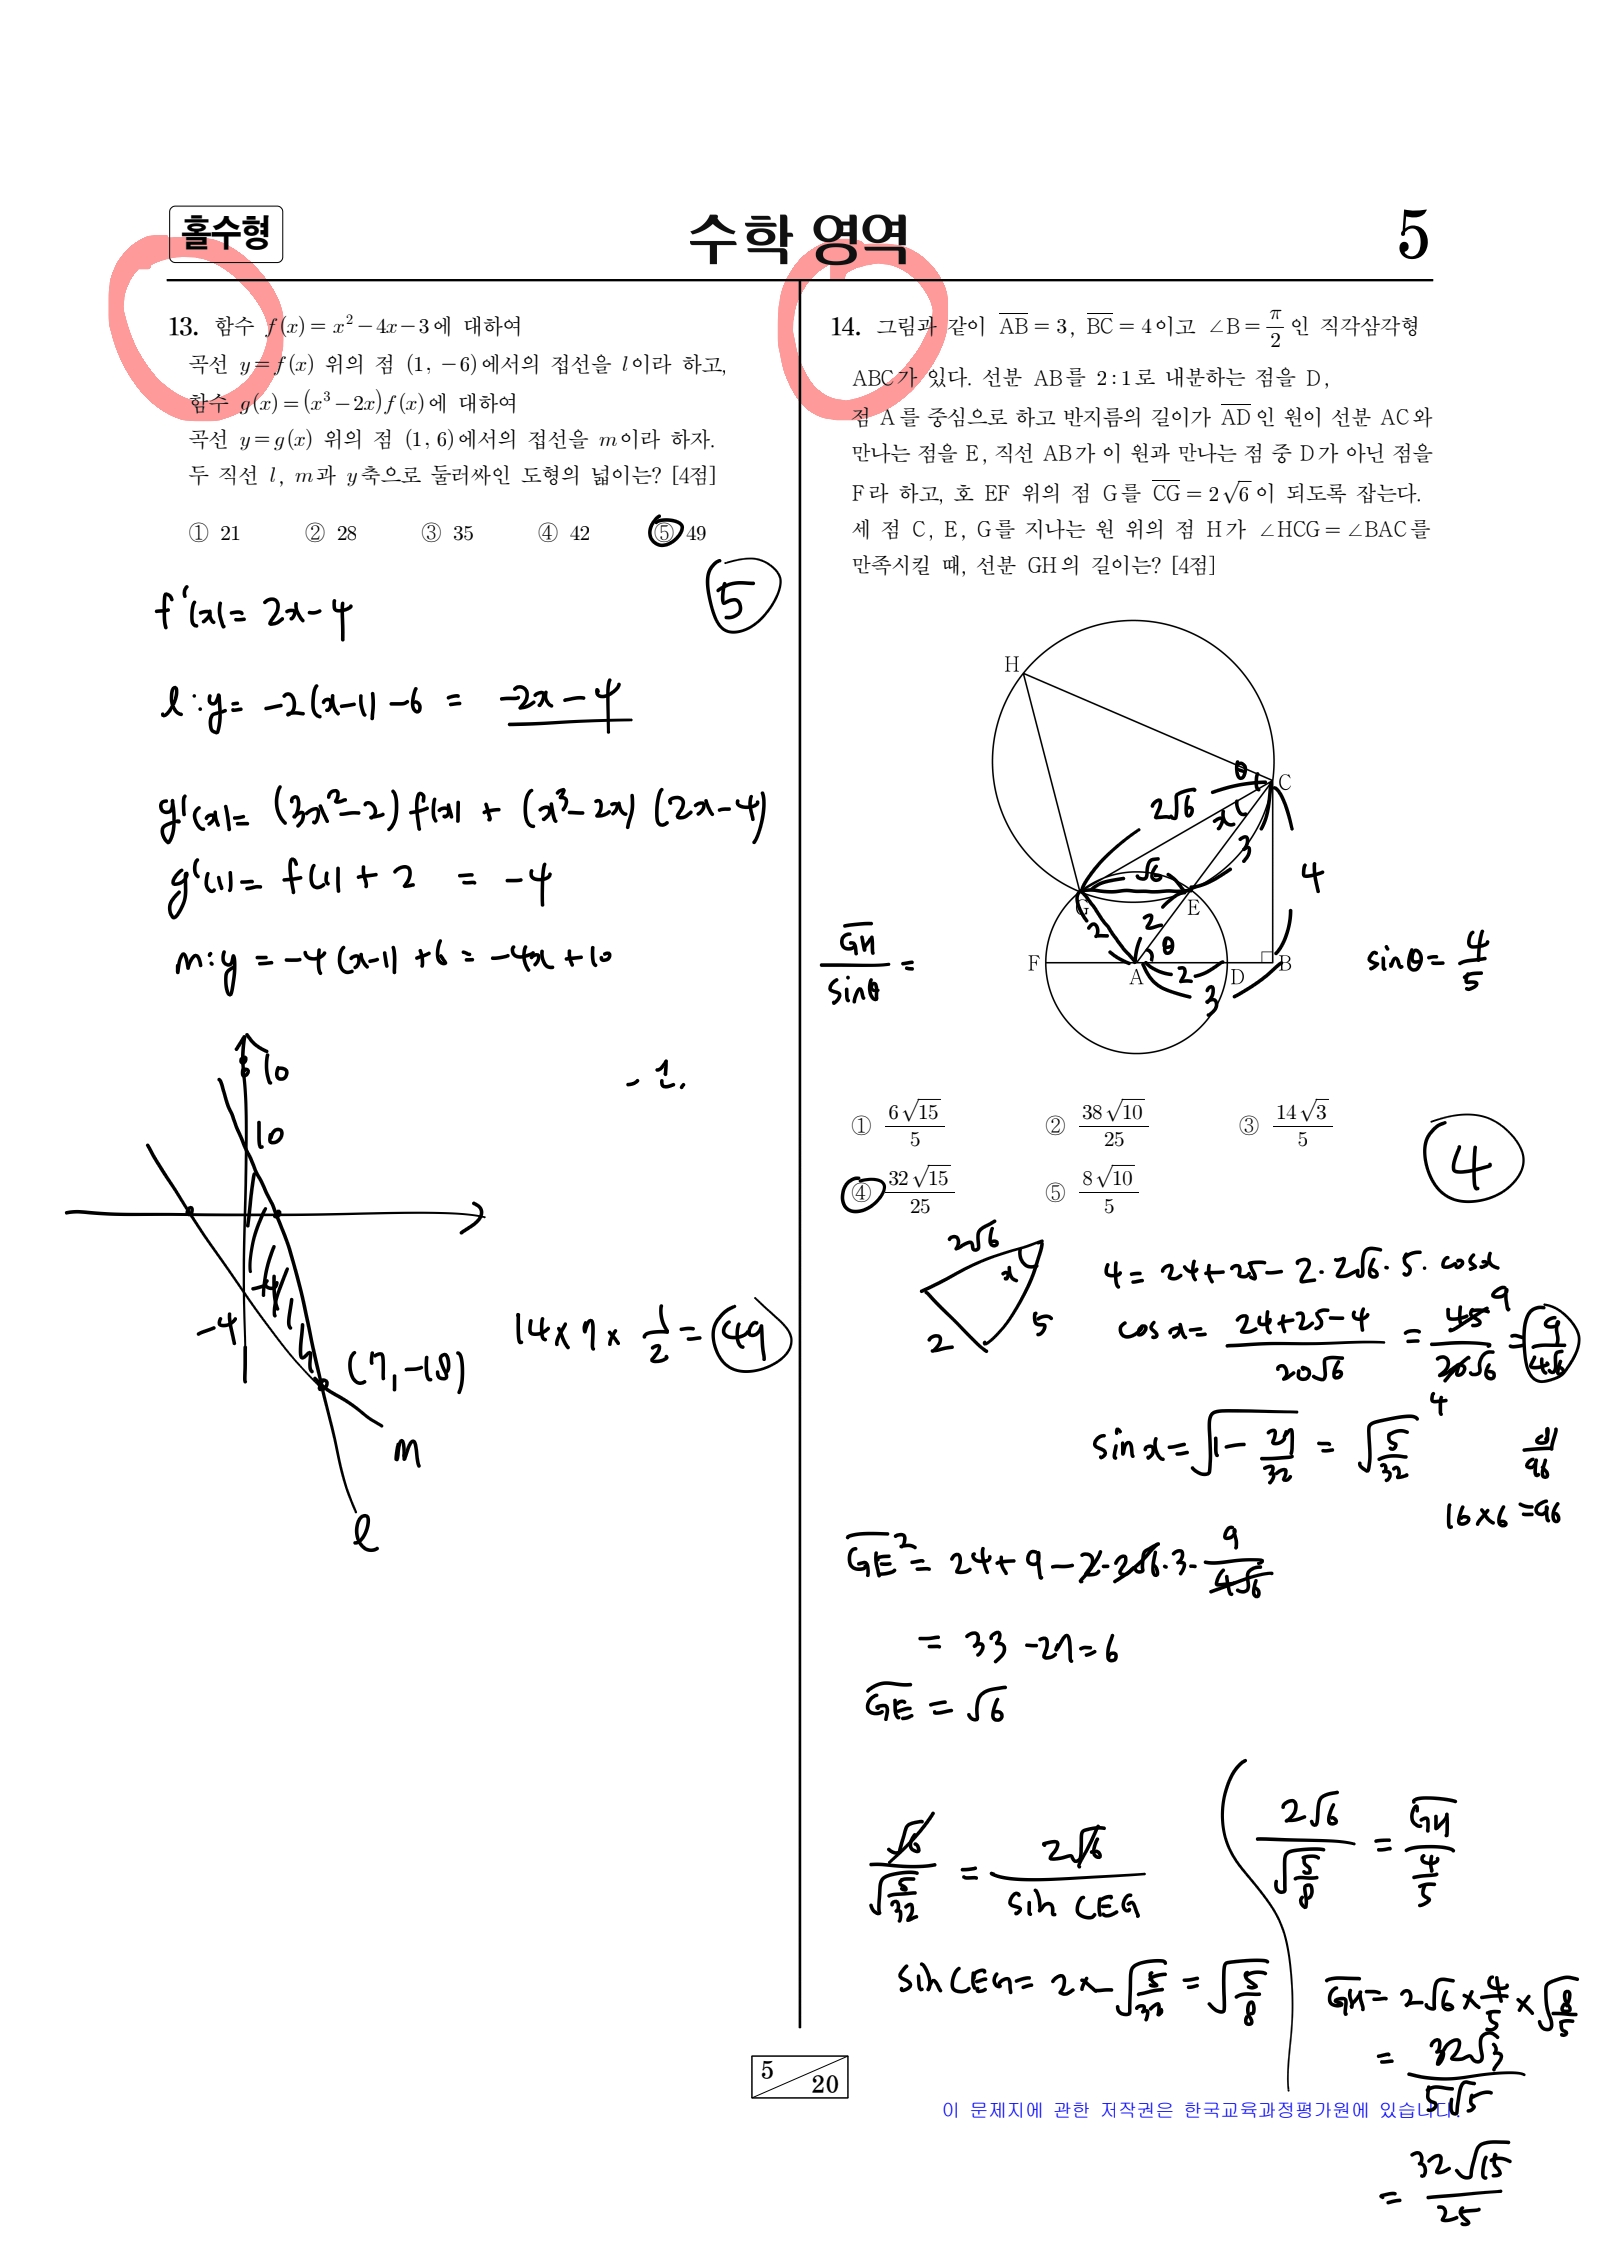 홀수형
수학 영역
5
13. 함수 f(x) = x² − 4x − 3에 대하여
곡선 y = f(x) 위의 점 (1, −6)에서의 접선을 l이라 하고,
함수 g(x) = (x³ − 2x)f(x)에 대하여
곡선 y = g(x) 위의 점 (1, 6)에서의 접선을 m이라 하자.
두 직선 l, m과 y축으로 둘러싸인 도형의 넓이는? [4점]
① 21 ② 28 ③ 35 ④ 42 ⑤ 49
5
f'(x) = 2x − 4
l : y = −2(x−1) − 6 = −2x − 4
g'(x) = (3x² − 2) f(x) + (x³ − 2x) (2x − 4)
g'(1) = f(1) + 2 = −4
m : y = −4(x−1) + 6 = −4x + 10
10
10
−4
−4
(7, −18)
m
l
14 × 7 × 1/2 = 49
14. 그림과 같이 AB = 3, BC = 4이고 ∠B = π/2 인 직각삼각형
ABC가 있다. 선분 AB를 2 : 1로 내분하는 점을 D,
점 A를 중심으로 하고 반지름의 길이가 AD인 원이 선분 AC와
만나는 점을 E, 직선 AB가 이 원과 만나는 점 중 D가 아닌 점을
F라 하고, 호 EF 위의 점 G를 CG = 2√6이 되도록 잡는다.
세 점 C, E, G를 지나는 원 위의 점 H가 ∠HCG = ∠BAC를
만족시킬 때, 선분 GH의 길이는? [4점]
H
θ C
2√6 x 3
√6 4
G E
2 2 θ
F A 2 D B
3
GH/sinθ =
sinθ = 4/5
① 6√15/5 ② 38√10/25 ③ 14√3/5
④ 32√15/25 ⑤ 8√10/5
4
2√6
x
5
2
4 = 24 + 25 − 2·2√6·5·cosx
cosx = (24+25−4)/(20√6) = 45/(20√6) = 9/(4√6)
9
4
sinx = √(1 − 27/32) = √(5/32)
81/96
16×6 = 96
GE² = 24 + 9 − 2·2√6·3·9/(4√6)
= 33 − 27 = 6
GE = √6
√6/√(5/32) = 2√6/sin CEG
sin CEG = 2 × √(5/32) = √(5/8)
2√6/√(5/8) = GH/(4/5)
GH = 2√6 × 4/5 × √(8/5)
= 32√3/(5√5)
= 32√15/25
5
20
이 문제지에 관한 저작권은 한국교육과정평가원에 있습니다.